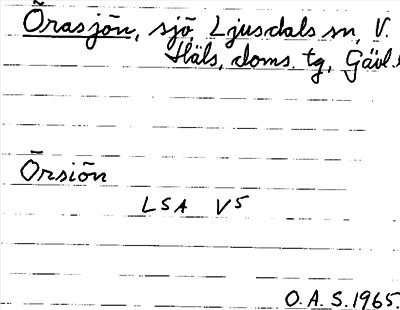 Örasjön, sjö, Ljusdals sn, V.
Häls. doms. tg, Gävl.
Örsiön
LSA V5
O.A.S. 1965.